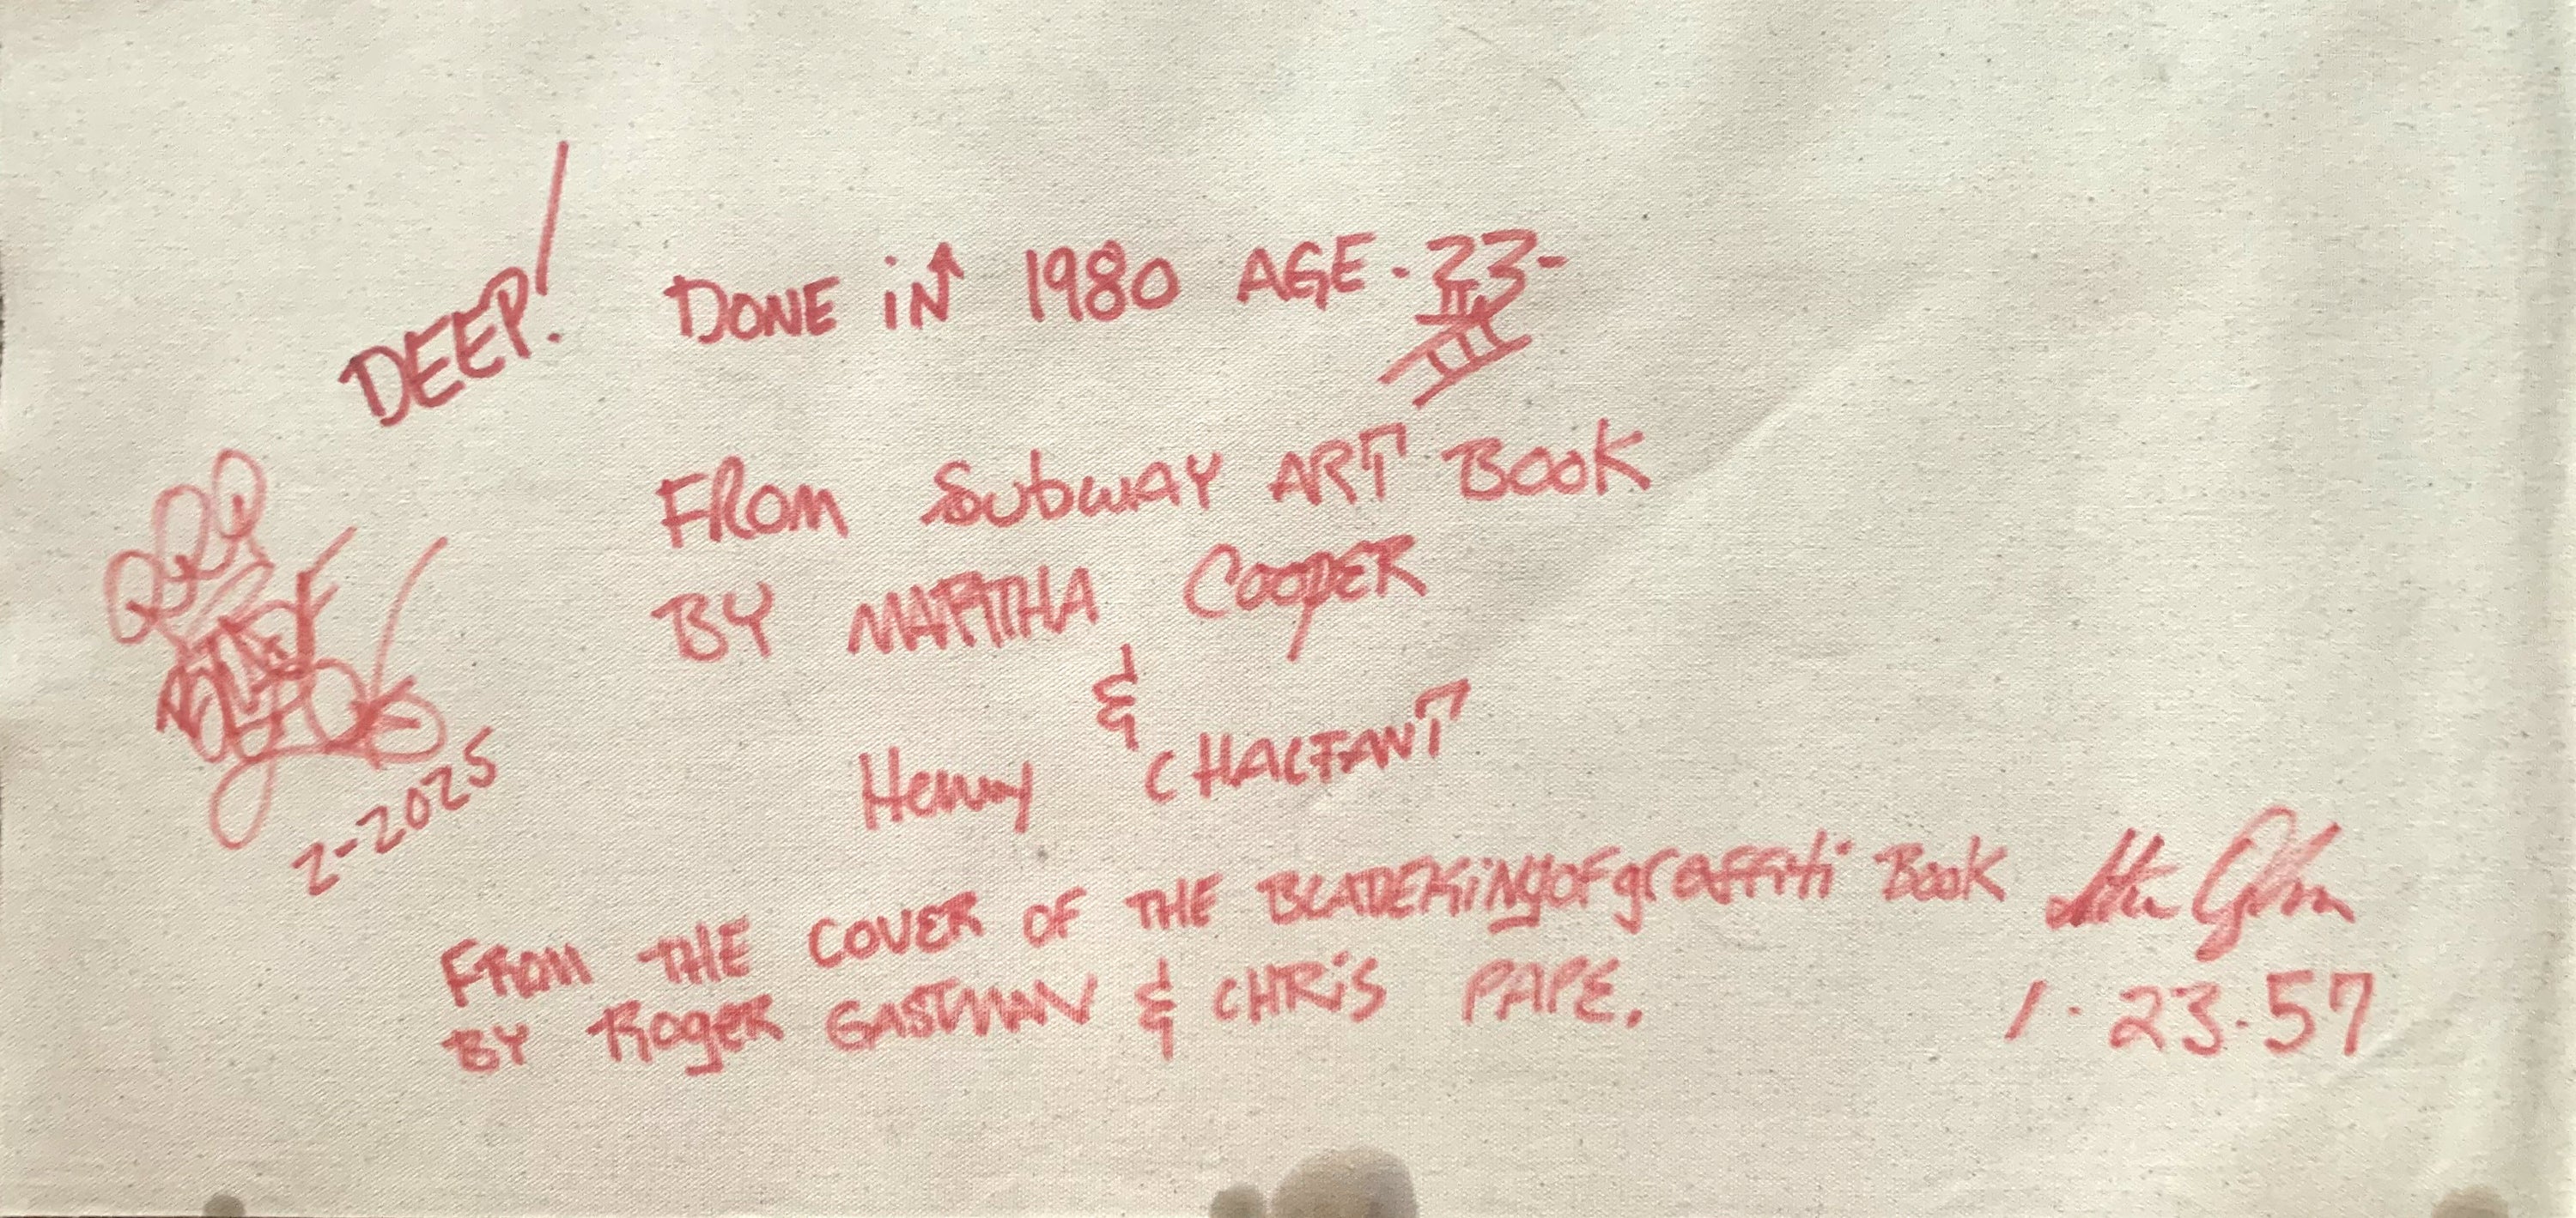 DEEP!
DONE iN 1980 AGE - 23 -
III
FROM SubWAY ART BOOK
BY MARTHA COOPER
&
Henry CHALFANT
2-2025
FROM THE COVER OF THE BLADEKiNgOFgraffiti BOOK
BY RogER GASTMAN & CHRiS PAPE.
1·23·57